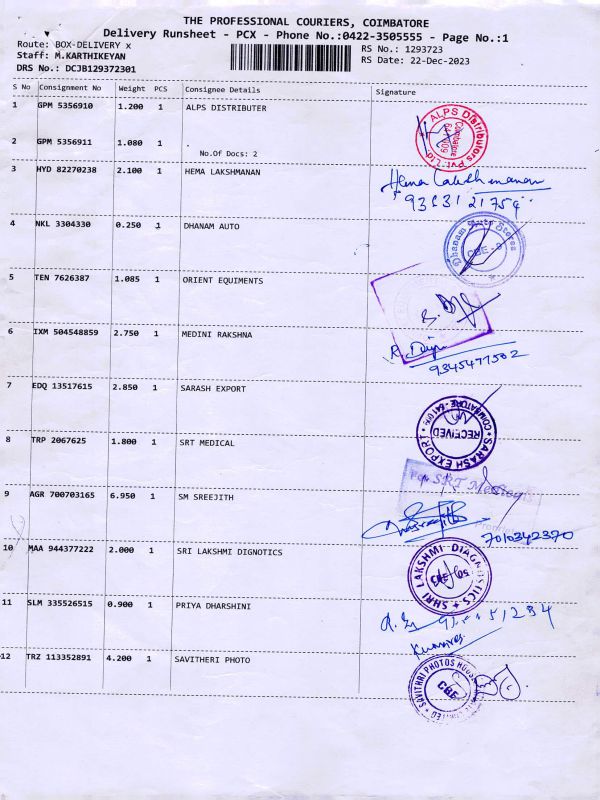 THE PROFESSIONAL COURIERS, COIMBATORE
Delivery Runsheet - PCX - Phone No.:0422-3505555 - Page No.:1
Route: BOX-DELIVERY x
RS No.: 1293723
Staff: M.KARTHIKEYAN
RS Date: 22-Dec-2023
DRS No.: DCJB129372301
S No Consignment No Weight PCS Consignee Details Signature
1 GPM 5356910 1.200 1 ALPS DISTRIBUTER
ALPS Distributors Pvt Ltd
Coimbatore
2 GPM 5356911 1.080 1 .
No.Of Docs: 2
3 HYD 82270238 2.100 1 HEMA LAKSHMANAN
Hema Lakshmanan
4 NKL 3304330 0.250 1 DHANAM AUTO
Dhanam Auto Stores
CBE - 9
5 TEN 7626387 1.085 1 ORIENT EQUIMENTS
6 IXM 504548859 2.750 1 MEDINI RAKSHNA
9345477502
7 EDQ 13517615 2.850 1 SARASH EXPORT
SARASH EXPORT
RECEIVED
8 TRP 2067625 1.800 1 SRT MEDICAL
For SRT
9 AGR 700703165 6.950 1 SM SREEJITH
7010342370
10 MAA 944377222 2.000 1 SRI LAKSHMI DIGNOTICS
SHRI LAKSHMI DIAGNOSTICS
11 SLM 335526515 0.900 1 PRIYA DHARSHINI
12 TRZ 113352891 4.200 1 SAVITHERI PHOTO
SAVITHRI PHOTOS HOUSE
CBE